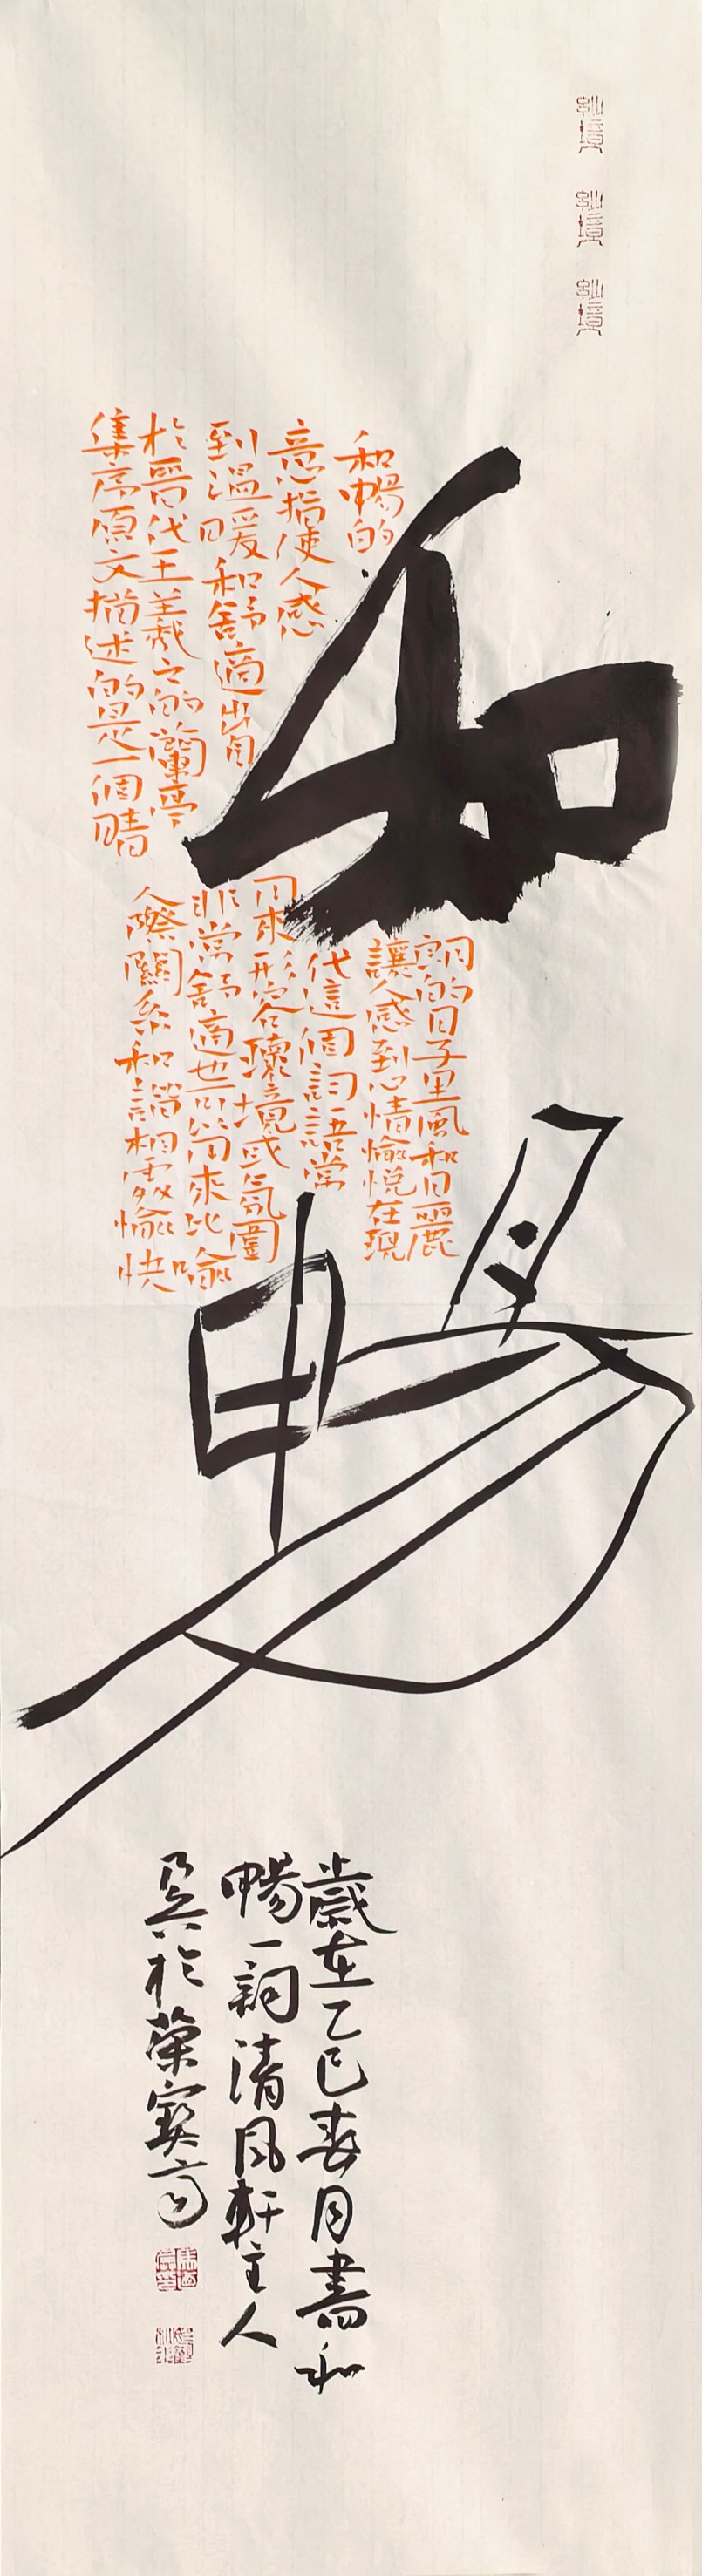 妙境
妙境
妙境
和暢
和暢的
意指使人感
到溫暖和舒適出自
於晉代王羲之的蘭亭
集序原文描述的是一個晴
朗的日子里風和日麗
讓人感到心情愉悅在現
代這個詞語常
用來形容環境或氛圍
非常舒適也可以用來比喻
人際關系和諧相處愉快
歲在乙巳春月書和
暢一詞清風軒主人
吳於榮寶齋